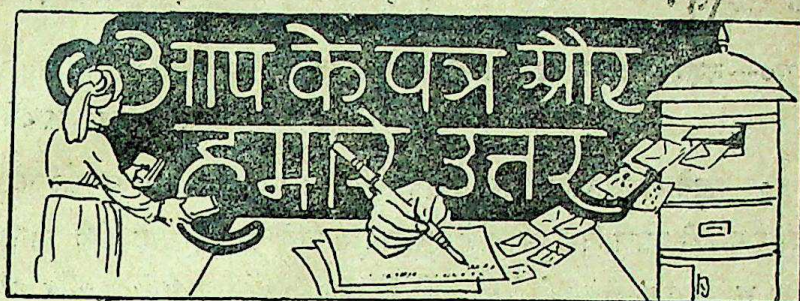 आप के पत्र और
हमारे उत्तर